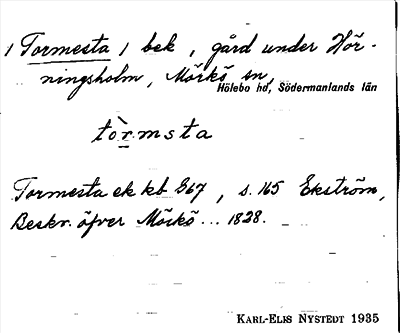 / Tormesta / bek , gård under Hör-
ningsholm, Mörkö sn,
Hölebo hd, Södermanlands län
tòrmsta
Tormesta ek kb 867, s. 165 Ekström,
Beskr. öfver Mörkö ... 1828.
KARL-ELIS NYSTEDT 1935